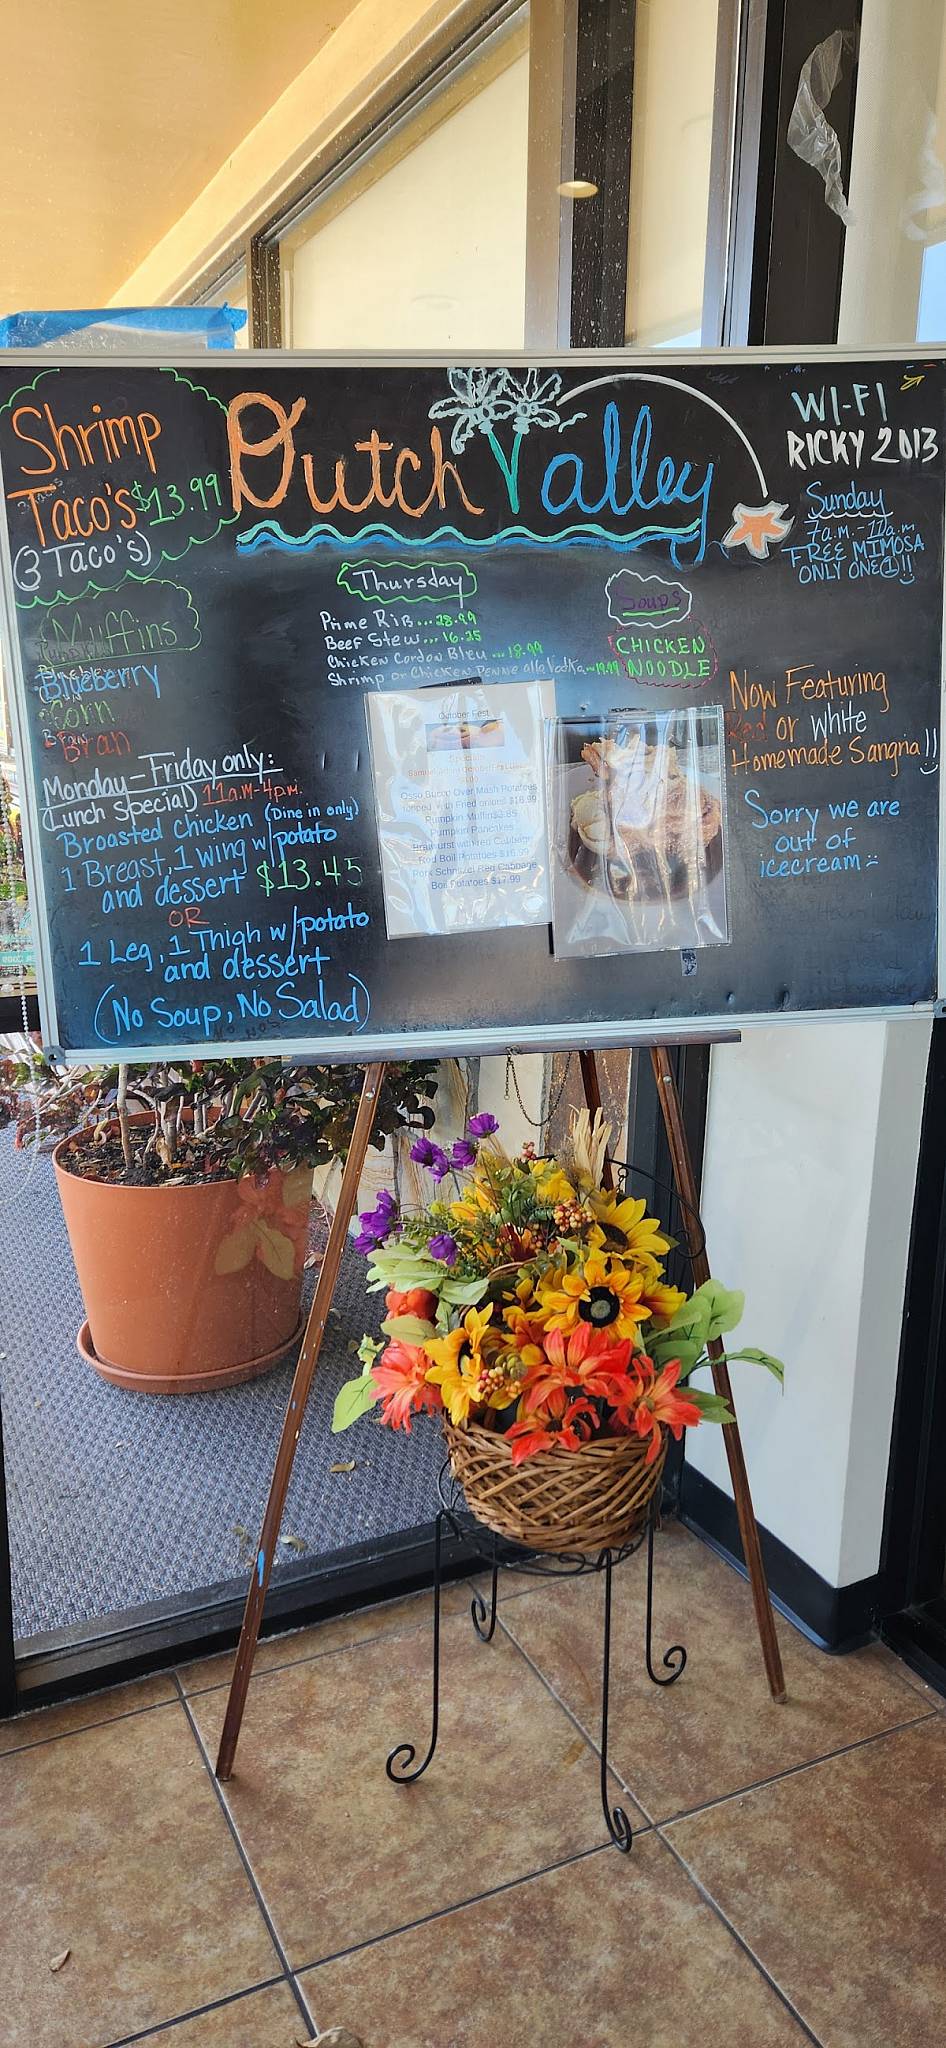 Shrimp
Taco's $13.99
(3 Taco's)
Dutch Valley
WI-FI
RICKY 2013
Sunday
7a.m.-11a.m
FREE MIMOSA
ONLY ONE(1)!!
Muffins
Blueberry
Corn
Bran
Thursday
Prime Rib... 28.99
Beef Stew... 16.25
Chicken Cordon Bleu... 18.99
Shrimp or Chicken Penne alla Vodka
Soups
CHICKEN
NOODLE
Monday-Friday only:
(Lunch Special) 11a.m-4p.m.
Broasted chicken (Dine in only)
1 Breast, 1 wing w/potato
and dessert $13.45
OR
1 Leg, 1 Thigh w/potato
and dessert
(No Soup, No Salad)
October Fest
Specials
Osso Bucco Over Mash Potatoes
topped with Fried onions $16.99
Pumpkin Muffin $3.85
Pumpkin Pancakes
Bratwurst with red Cabbage
Red Boil Potatoes $16.99
Pork Schnitzel Red Cabbage
Boil Potatoes $17.99
Now Featuring
Red or White
Homemade Sangria!!
Sorry we are
out of
icecream